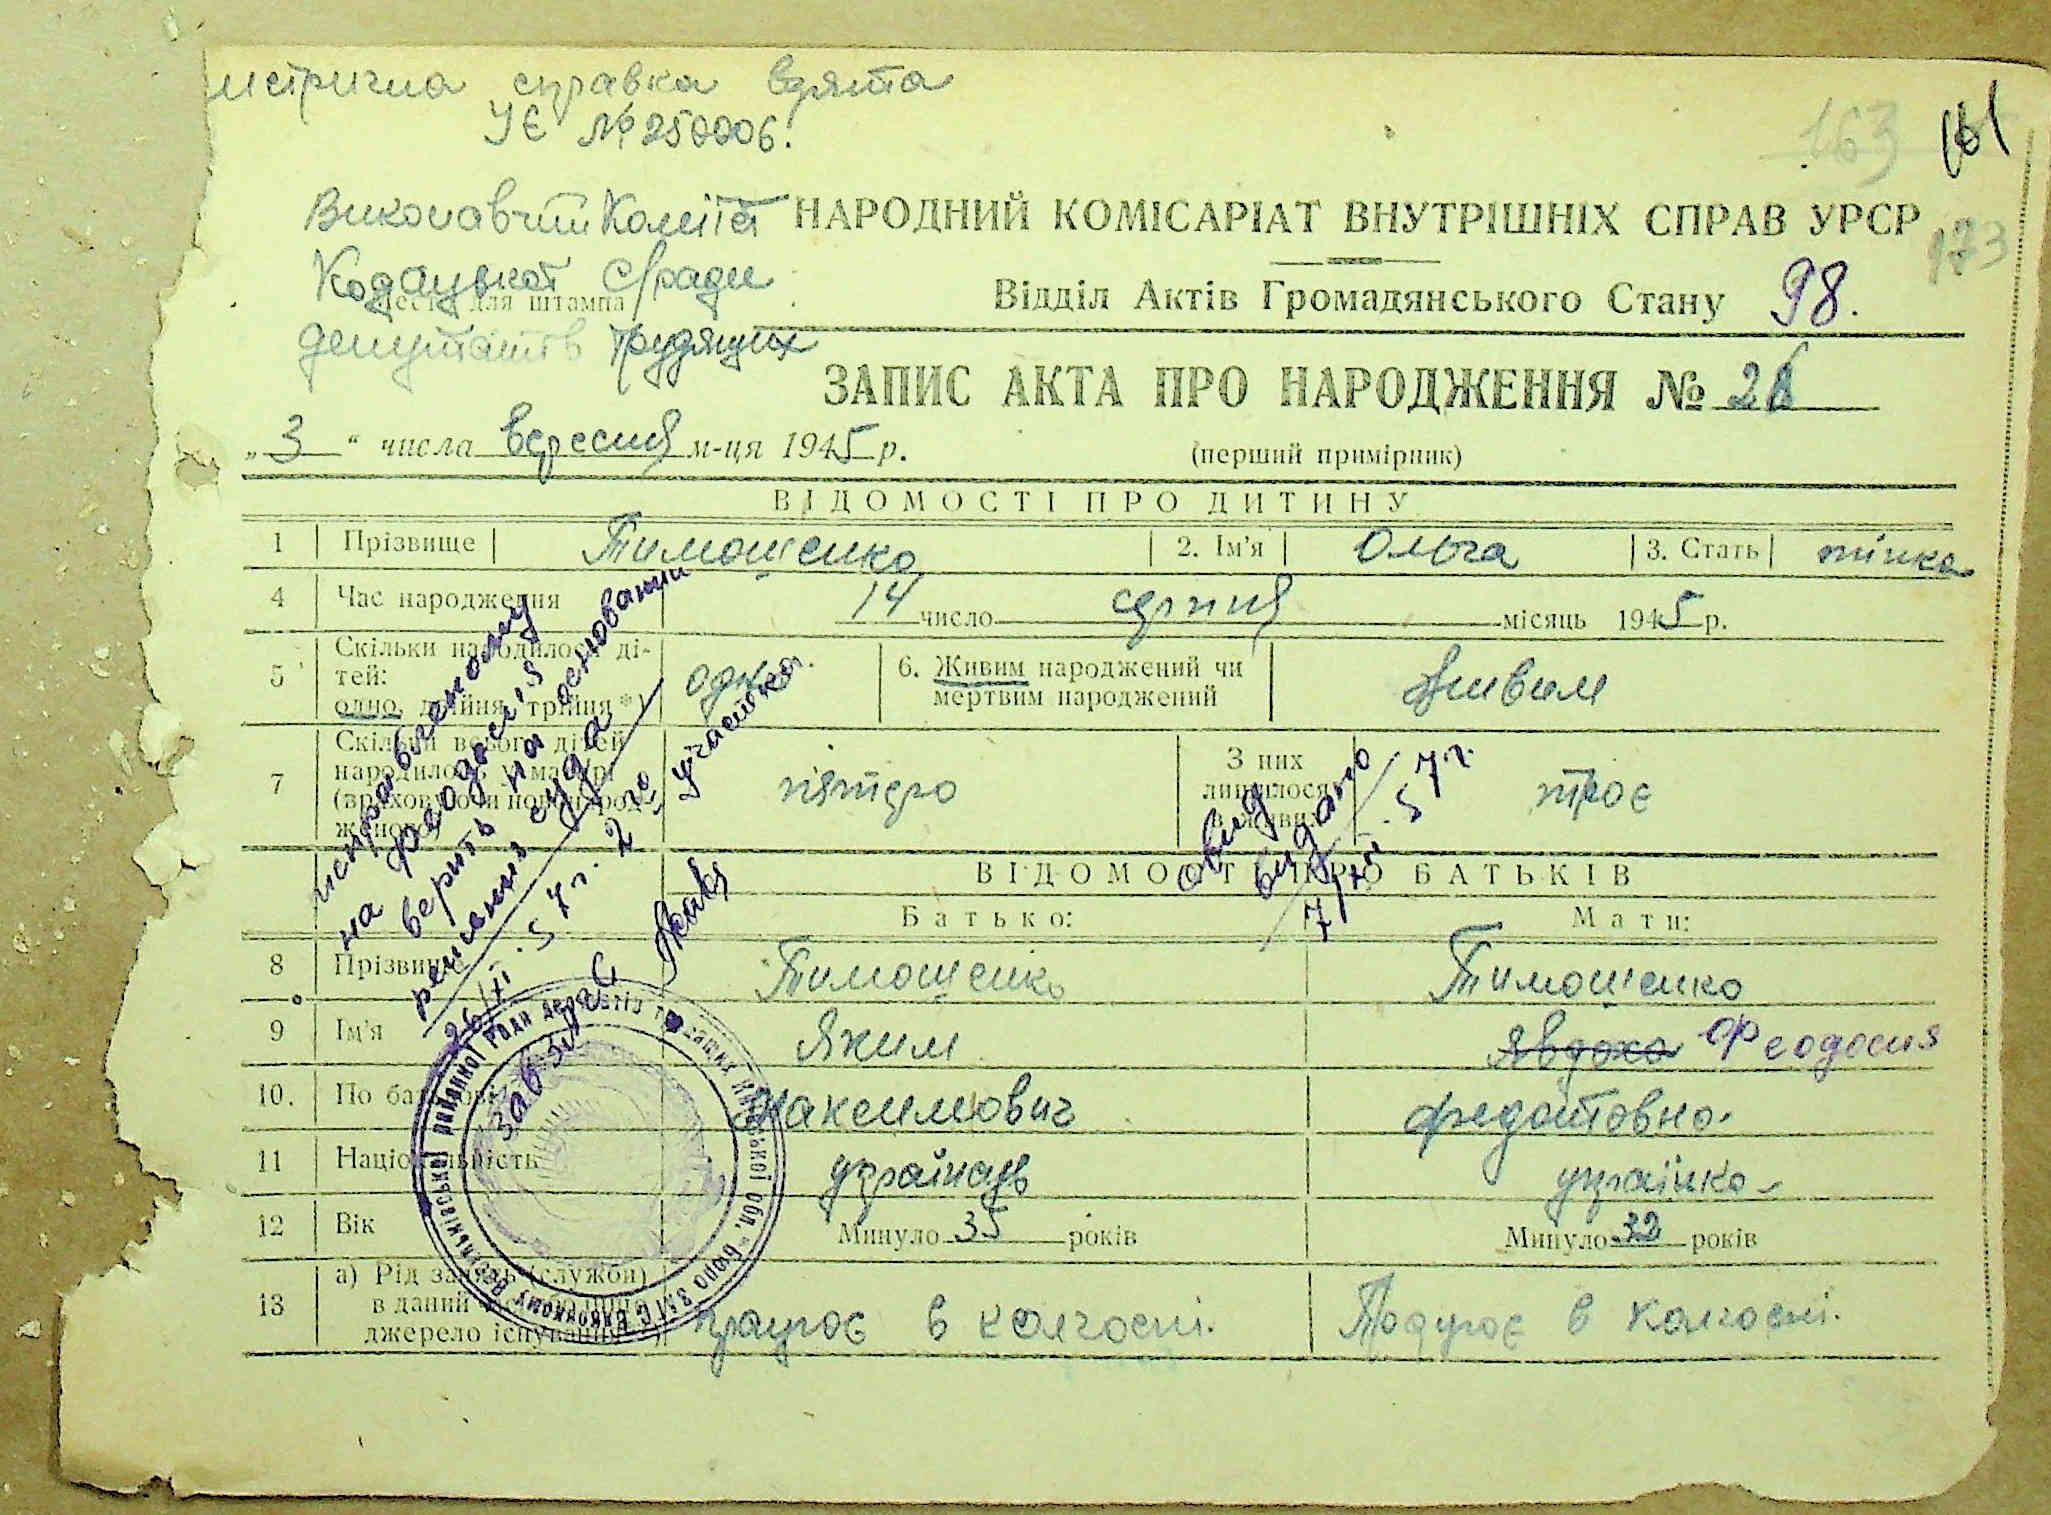 справка взята
УЄ № 250006.
163 161
Виконавчий Комітет НАРОДНИЙ КОМІСАРІАТ ВНУТРІШНІХ СПРАВ УРСР
173
Кодацької с/ради
Місце для штампа
Відділ Актів Громадянського Стану 98.
депутатів трудящих
ЗАПИС АКТА ПРО НАРОДЖЕННЯ №
„ 3 “ числа вересня м-ця 1945 р. (перший примірник)
ВІДОМОСТІ ПРО ДИТИНУ
1 Прізвище Тимошенко 2. Ім'я Ольга 3. Стать жінка
4 Час народження 14 число серпня місяць 1945 р.
5 Скільки народилося ді-
тей:
одно, двійня, трійня *)
одно
6. Живим народжений чи
мертвим народжений
живим
7 Скільки всього дітей
народилось у матері
(враховуючи новонарод-
женого)
пятеро
З них
лишилося
в живих
троє
исправленому
на Феодосія
верить на основании
решения суда 2го участка.
26/XI.57 г.
Зав ЗАГС
видано
7/XII.57 г.
ВІДОМОСТІ ПРО БАТЬКІВ
Батько: Мати:
8 Прізвище Тимошенко Тимошенко
9 Ім'я Яким Явдоха Феодосия
10. По батькові Максимович Федотовна
11 Національність українець українка
12 Вік Минуло 35 років Минуло 32 років
13 а) Рід занять (служби)
в даний час або інше
джерело існування
працює в колгоспі. Працює в колгоспі.
Васильківської районної Ради депутатів трудящих Київської обл. Бюро ЗАГС Виконкому